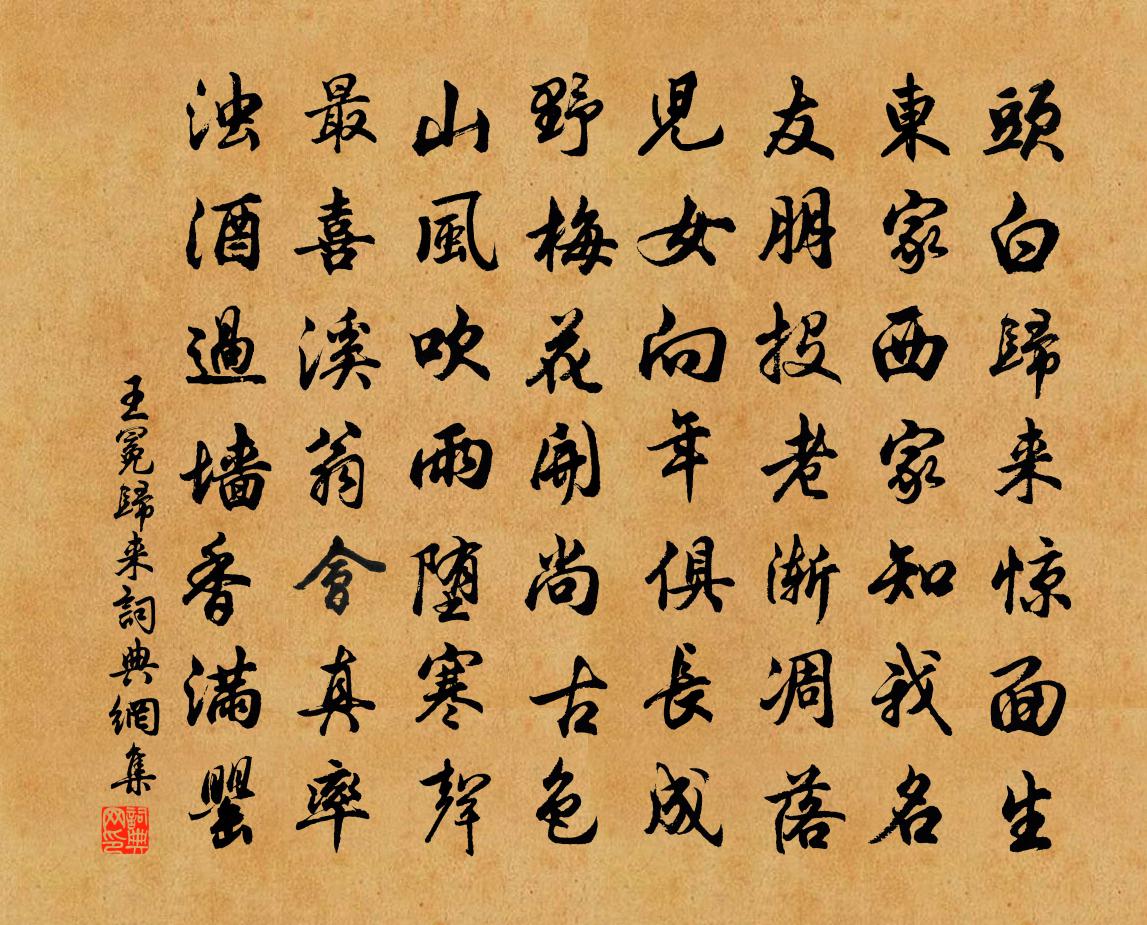 頭白歸来惊面生
東家西家知我名
友朋投老漸凋落
児女向年俱長成
野梅花開尚古色
山風吹雨堕寒聲
最喜溪翁會真率
浊酒過墙香满罌
王冕歸来詞典網集
詞典网印